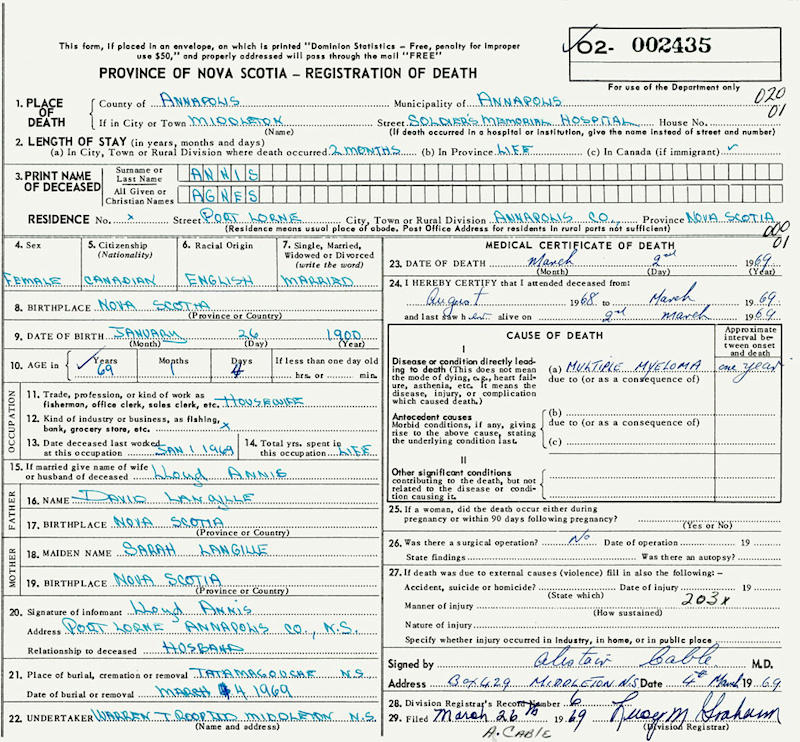 This form, if placed in an envelope, on which is printed "Dominion Statistics – Free, penalty for improper
use $50," and properly addressed will pass through the mail "FREE"
02- 002435
PROVINCE OF NOVA SCOTIA – REGISTRATION OF DEATH
For use of the Department only
020
01
1. PLACE OF DEATH
County of ANNAPOLIS Municipality of ANNAPOLIS
If in City or Town MIDDLETON Street SOLDIER'S MEMORIAL HOSPITAL House No.
(Name) (If death occurred in a hospital or institution, give the name instead of street and number)
2. LENGTH OF STAY (in years, months and days)
(a) In City, Town or Rural Division where death occurred 2 MONTHS (b) In Province LIFE (c) In Canada (if immigrant) ✓
3. PRINT NAME OF DECEASED
Surname or Last Name ANNIS
All Given or Christian Names AGNES
RESIDENCE No. x Street PORT LORNE City, Town or Rural Division ANNAPOLIS CO., Province NOVA SCOTIA
(Residence means usual place of abode. Post Office Address for residents in rural parts not sufficient)
000
01
4. Sex
FEMALE
5. Citizenship (Nationality)
CANADIAN
6. Racial Origin
ENGLISH
7. Single, Married, Widowed or Divorced (write the word)
MARRIED
8. BIRTHPLACE NOVA SCOTIA
(Province or Country)
9. DATE OF BIRTH JANUARY 26 1900
(Month) (Day) (Year)
10. AGE in Years Months Days If less than one day old
69 1 4 hrs. or min.
OCCUPATION
11. Trade, profession, or kind of work as
fisherman, office clerk, sales clerk, etc. HOUSEWIFE
12. Kind of industry or business, as fishing,
bank, grocery store, etc. x
13. Date deceased last worked at this occupation JAN 1 1969
14. Total yrs. spent in this occupation LIFE
15. If married give name of wife
or husband of deceased Lloyd ANNIS
FATHER
16. NAME DAVID LANGILLE
17. BIRTHPLACE NOVA SCOTIA
(Province or Country)
MOTHER
18. MAIDEN NAME SARAH LANGILLE
19. BIRTHPLACE NOVA SCOTIA
(Province or Country)
20. Signature of informant Lloyd Annis
Address PORT LORNE ANNAPOLIS CO., N.S.
Relationship to deceased HUSBAND
21. Place of burial, cremation or removal TATAMAGOUCHE N.S.
Date of burial or removal MARCH 4 1969
22. UNDERTAKER WARREN T ROOP LTD MIDDLETON N.S.
(Name and address)
MEDICAL CERTIFICATE OF DEATH
23. DATE OF DEATH March 2nd 1969
(Month) (Day) (Year)
24. I HEREBY CERTIFY that I attended deceased from:
August 1968 to March 1969
and last saw her alive on 2nd march 1969
CAUSE OF DEATH
Approximate interval between onset and death
I
Disease or condition directly leading to death (This does not mean the mode of dying, e.g., heart failure, asthenia, etc. It means the disease, injury, or complication which caused death.)
(a) MULTIPLE MYELOMA one year
due to (or as a consequence of)
Antecedent causes
Morbid conditions, if any, giving rise to the above cause, stating the underlying condition last.
(b)
due to (or as a consequence of)
(c)
II
Other significant conditions
contributing to the death, but not related to the disease or condition causing it.
25. If a woman, did the death occur either during
pregnancy or within 90 days following pregnancy?
(Yes or No)
26. Was there a surgical operation? No Date of operation 19
State findings Was there an autopsy?
27. If death was due to external causes (violence) fill in also the following: –
Accident, suicide or homicide? Date of injury 19
(State which)
Manner of injury 203x
(How sustained)
Nature of injury
Specify whether injury occurred in industry, in home, or in public place
Signed by Alistair Cable M.D.
Address Box 429 MIDDLETON NS Date 4th March 1969
28. Division Registrar's Record Number 6
29. Filed March 26th 1969 Lucy M Graham
(Division Registrar)
A. CABLE